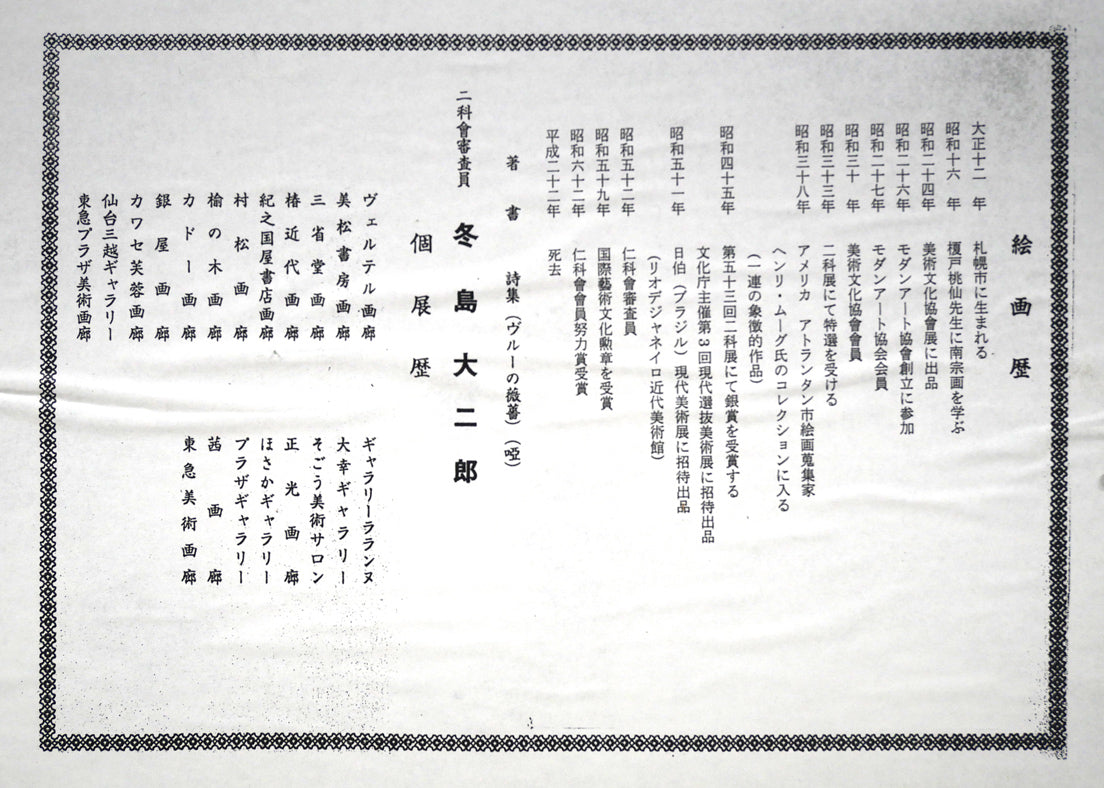 絵画歴
大正十二年 札幌市に生まれる
昭和十六年 榎戸桃仙先生に南宗画を学ぶ
昭和二十四年 美術文化協會展に出品
昭和二十六年 モダンアート協會創立に参加
昭和二十七年 モダンアート協会会員
昭和三十年 美術文化協會會員
昭和三十三年 二科展にて特選を受ける
昭和三十八年 アメリカ アトランタン市絵画蒐集家
ヘンリ・ムーグ氏のコレクションに入る
(一連の象徴的作品)
昭和四十五年 第五十三回二科展にて銀賞を受賞する
文化庁主催第3回現代選抜美術展に招待出品
昭和五十一年 日伯(ブラジル)現代美術展に招待出品
(リオデジャネイロ近代美術館)
昭和五十二年 仁科會審査員
昭和五十九年 国際藝術文化勲章を受賞
昭和六十二年 仁科會會員努力賞受賞
平成二十二年 死去
著書 詩集(ヴルーの薇薔)(啞)
二科會審査員 冬島大二郎
個展歴
ヴェルテル画廊
美松書房画廊
三省堂画廊
椿近代画廊
紀之国屋書店画廊
村松画廊
檜の木画廊
カドー画廊
銀屋画廊
カワセ芙蓉画廊
仙台三越ギャラリー
東急プラザ美術画廊
ギャラリーラランヌ
大幸ギャラリー
そごう美術サロン
正光画廊
ほさかギャラリー
プラザギャラリー
茜画廊
東急美術画廊